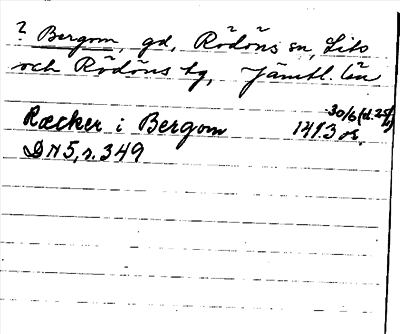 ? Bergom, gd, Rödöns sn, Lits
och Rödöns tg, Jämtl. län
30/6 (d. 29/6)
Ræcker i Bergom 1413 or.
DN 5, s. 349